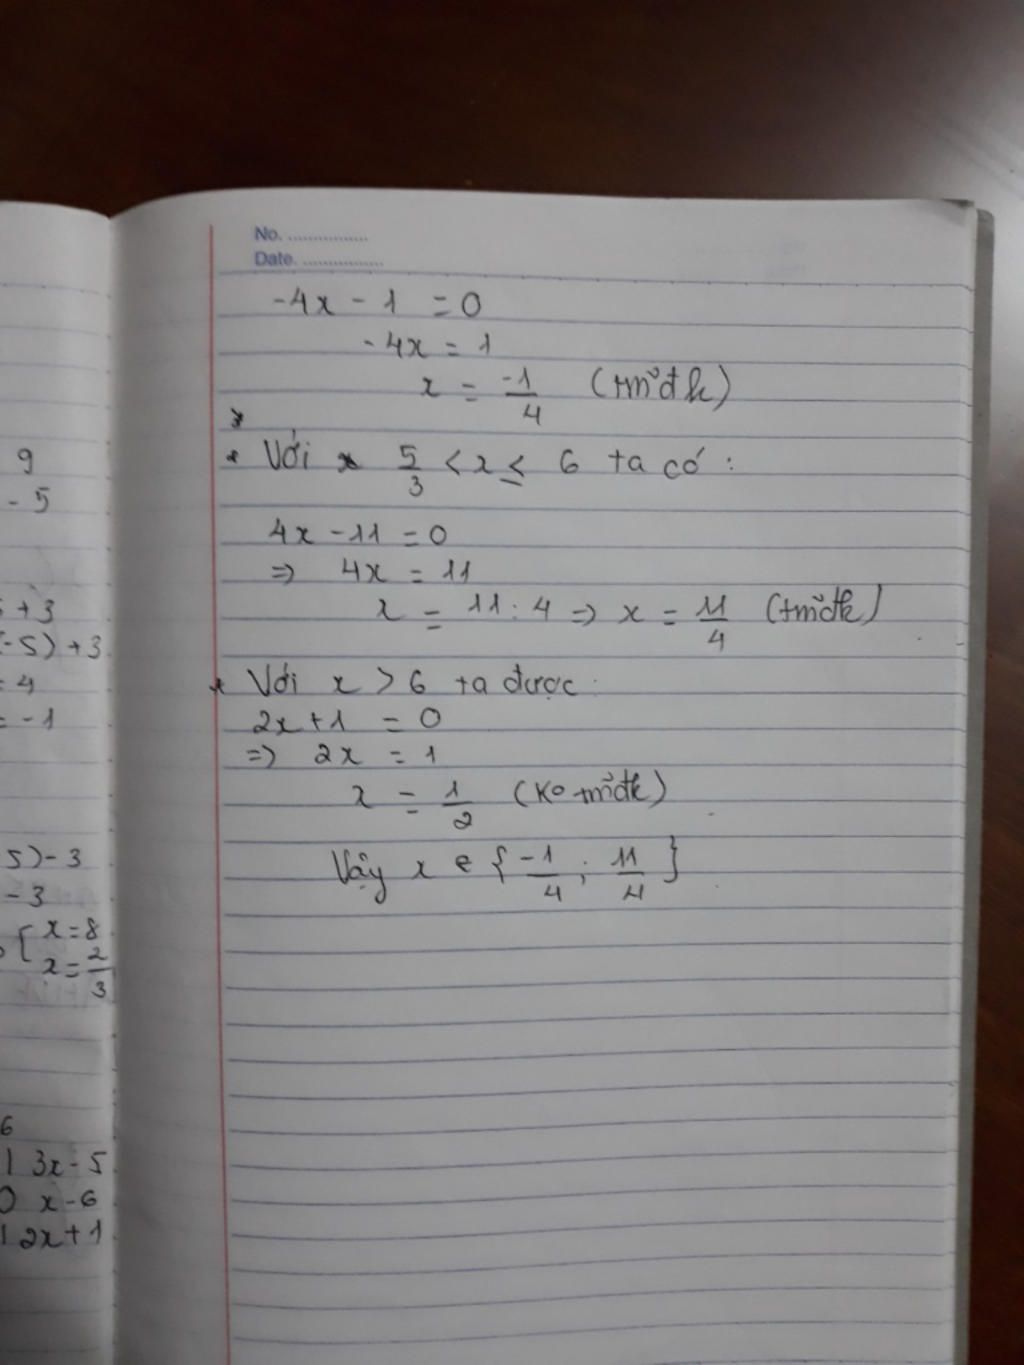 9
- 5
+ 3
(-5) + 3
= 4
= -1
5) - 3
- 3
[ x = 8
x = 2/3
6
| 3x - 5
0 x - 6
| 2x + 1
No. ................
Date. ................
-4x - 1 = 0
-4x = 1
x = -1/4 (tm đk)
* Với 5/3 < x ≤ 6 ta có :
4x - 11 = 0
=> 4x = 11
x = 11 : 4 => x = 11/4 (tm đk)
* Với x > 6 ta được :
2x + 1 = 0
=> 2x = 1
x = 1/2 (Ko tm đk)
Vậy x ∈ { -1/4 ; 11/4 }